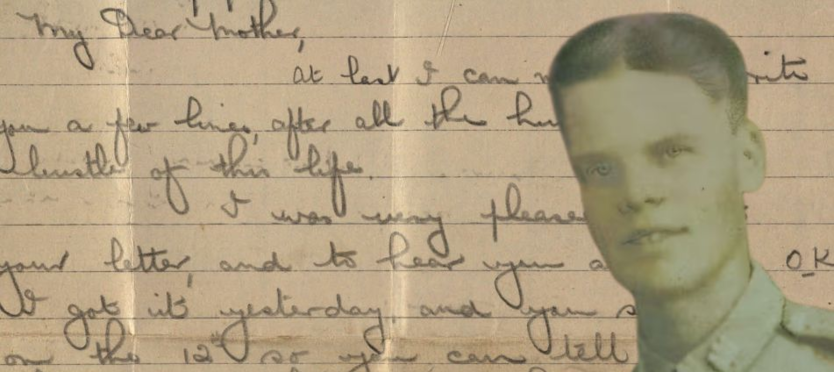 My Dear Mother,
at last I can write
you a few lines, after all the
bustle of this life.
I was very please
your letter, and to hear you a O.K
I got it yesterday, and you s
on the 12th so you can tell